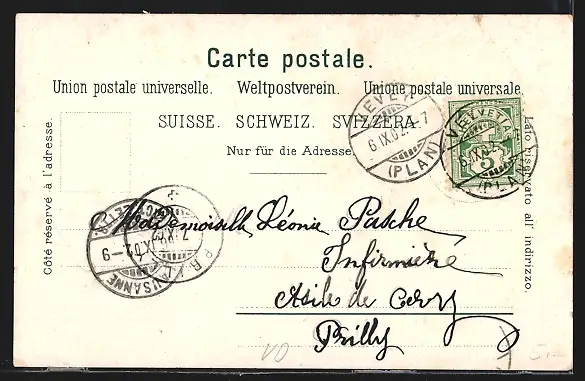 Carte postale.
Union postale universelle. Weltpostverein. Unione postale universale.
SUISSE. SCHWEIZ. SVIZZERA.
Nur für die Adresse
Côté réservé à l'adresse.
Lato riservato all' indirizzo.
VEVEY
6.IX.02
(PLAN)
VEVEY
(PLAN)
5
LAUSANNE
IX.02
Mademoiselle Léonie Pasche
Infirmière
Asile de Cery
Prilly